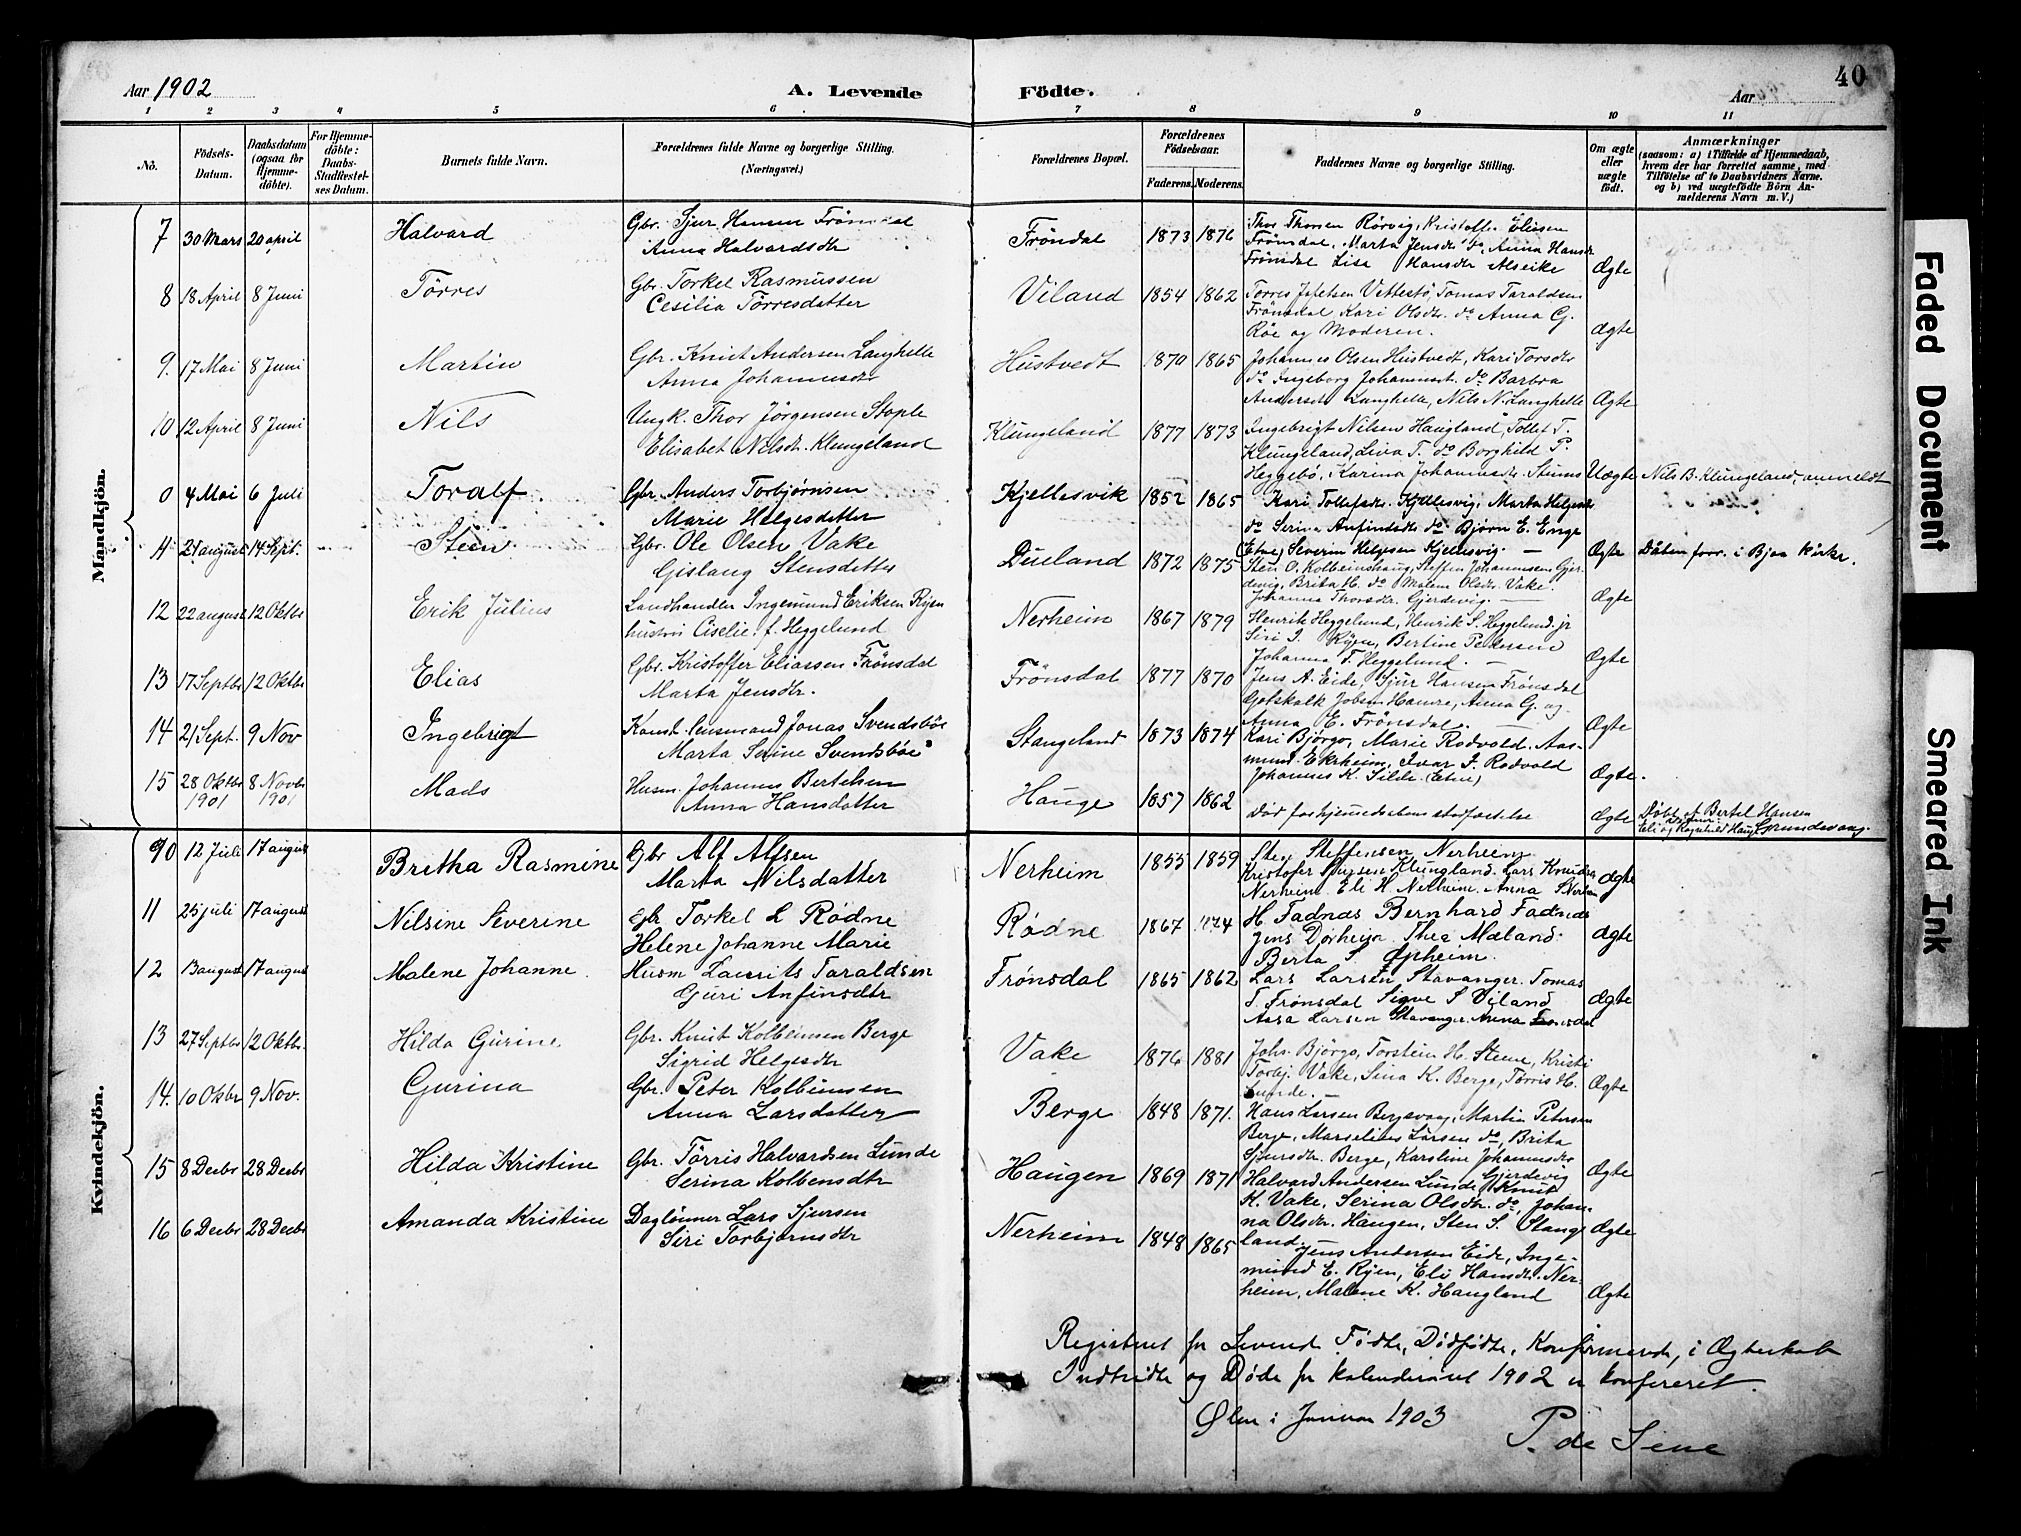 Aar 1902
A. Levende Födte.
Aar
40
1 2 3 4 5 6 7 8 9 10 11
No.
Födsels-Datum.
Daabsdatum (ogsaa for Hjemme-döbte).
For Hjemme-döbte: Daabs-Stadfæstel-ses Datum.
Barnets fulde Navn.
Forældrenes fulde Navne og borgerlige Stilling.
(Næringsvei.)
Forældrenes Bopæl.
Forældrenes Födselsaar.
Faderens. Moderens.
Faddernes Navne og borgerlige Stilling.
Om ægte eller uægte födt.
Anmærkninger
(saasom: a) i Tilfælde af Hjemmedaab, hvem der har forrettet samme, med Tilföielse af to Daabsvidners Navne. og b) ved uægtefödte Börn An-melderens Navn m. V.)
Mandkjön.
7 30 Mars 20 april Halvard Gbr. Sjur Hansen Frönsdal
Anna Halvardsdtr Fröndal 1873 1876 Thor Thorsen Rörvig, Kristoffer Eliasen
Frönsdal, Marta Jensdtr do, Anna Hansdr
Frönsdal Lisa Hansdtr Alseike Ægte
8 18 April 8 Juni Törres Gbr. Torkel Rasmussen
Cesilia Törresdatter Viland 1854 1862 Torres Vettestö, Tomas Taraldsen
Frönsdal, Kari Olsdr. do Anna G.
Röe og Moderen. Ægte
9. 17 Mai 8 Juni Martin Gbr. Knut Andersen Langhelle
Anna Johannesdtr Hustvedt 1870 1865 Johannes Olsen Hustvedt, Kari Torsdtr
do Ingeborg Johannesd. do Barbra
Andersdr Langhelle, Nils N. Langhelle Ægte
10 12 April 8 Juni Nils Ungk. Thor Jörgensen Stople
Elisabet Nilsdr. Klungeland Klungeland 1877 1873 Ingebrigt Nilsen Haugland, Tollef T.
Klungeland, Liva T. do Borghild P.
Heggebö, Karina Johannesdr. Uægte Nils B. Klungeland, anmeldt
0 4 Mai 6 Juli Toralf Gbr. Anders Torbjørnsen
Marie Helgesdatter Kjellesvik 1852 1865 Kari Tollefsdr. Kjellesvig, Marta Helgesdr
do Serina Anfindsdtr do. Bjørn E. Enge
(Etne) Severin Helgesen Kjellesvig. Ægte Dåben forr. i Bjoa kirke.
11 21 august 14 Sept. Steen Gbr. Ole Olsen Vake
Gislaug Stensdatter Dueland 1872 1875 Sten O. Kolbeinshaug, Steffen Johannessen Gjer-
devig, Brita H. do Malene Olsdr. Vake.
Johanna Thorsdr. Gjerdevig. Ægte
12 22 august 12 Oktbr Erik Julius Landhandler Ingemund Eriksen Ryen
hustru Ciselie f. Heggelund Nerheim 1867 1879 Henrik Heggelund, Henrik S. Heggelund jr
Siri I. Ryen, Bertine Pedersen
Johanna F. Heggelund. Ægte
13 17 Septbr 12 Oktbr Elias Gbr. Kristoffer Eliassen Frönsdal
Marta Jensdtr. Frönsdal 1877 1870 Jens A. Eide, Sjur Hansen Frönsdal
Gotskalk Jobsen Hamre, Anna G. og
Anna E. Frönsdal. Ægte
14 21 Sept. 9 Nov Ingebrigt Konst. Lensmand Jonas Svendsböe
Marta Serine Svendsböe Stangeland 1873 1874 Kari Björgo, Marie Rodvold, Aas-
mund Ekrheim, Ivar I. Rodvold
Johannes K. Silde (Etne) Ægte.
15 28 Oktbr 1901 8 Novbr 1901 Mads Husm. Johannes Bertelsen
Anna Hansdatter Hauge 1857 1862 Död for hjemmedaabens stadfæstelse Ægte Döbt af Bertel Hansen
Grundevaag.
Kvindekjön.
90 12 Juli 17 august Bretha Rasmine Gbr Alf Alfsen
Marta Nilsdatter Nerheim 1855 1859 Sten Steffensen Nerheim
Kristofer Sjursen Klungland. Lars Knudsen
Nerheim. Eli H Nerheim. Anna S Nerheim Ægte
11 25 juli 17 august Nilsine Severine gbr Torkel L Rødne
Helene Johanne Marie Rødne 1867 1874 H Fadnes Bernhard Fadnes
Jens Dørheim. Thea Mæland
Berta S. Opheim. Ægte
12 13 august 17 august Malene Johanne. Husm Laurits Taraldsen
Guri Anfinsdtr Frønsdal 1865 1862 Lars Larsen Stavanger. Tomas
T. Frønsdal Signe S Viland
Aasa Larsen Stavanger. Anna Frønsdal Ægte
13 27 Septbr 12 Oktbr. Hilda Gurine Gbr. Knut Kolbensen Berge
Sigrid Helgesdtr Vake 1876 1881 Johs. Björgo, Torstein H. Steine, Kristi
Torbj. Vake, Sina K. Berge, Törris H.
Lunde. Ægte
14. 10 Oktbr 9 Nov. Gurina Gbr. Peter Kolbeinsen
Anna Larsdatter Berge 1848 1871. Hans Larsen Bergevaag, Martin Petersen
Berge, Marselius Larsen do, Brita
Sjursdtr. Berge, Karoline Johannesdtr
Gjerdevig Ægte
15 8 Decbr 28 Decbr Hilda Kristine Gbr. Törris Halvardsen Lunde
Serina Kolbensdtr Haugen 1869 1871 Halvard Andersen Lunde, Knut
K. Vake, Serina Olsdtr. do, Johan-
na Olsdtr. Haugen, Sten S. Stange
land. Ægte
16 6 Decbr 28 Decbr Amanda Kristine Daglönner Lars Sjursen
Siri Torbjørnsdtr Nerheim 1848 1865 Jens Andersen Eide, Inge-
mund E. Ryen, Eli Hansdr. Ner-
heim, Malene K. Haugland Ægte
Registret for Levende Födte, Dödfödte, Konfirmerede, i Ægteskab
Indtrådte og Døde for Kalenderåret 1902 er konfereret.
Ølen i Januar 1903
P. de Seue
Faded Document
Smeared Ink